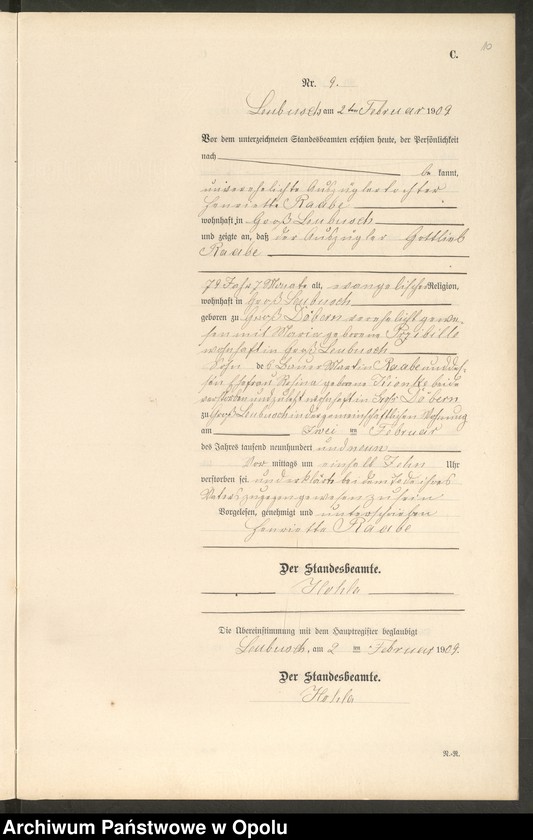 10
C.
Nr. 9.
Leubusch am 2ten Februar 1909
Vor dem unterzeichneten Standesbeamten erschien heute, der Persönlichkeit
nach
be kannt,
unverehelichte Auszüglerstochter
Henriette Raabe
wohnhaft in Groß Leubusch
und zeigte an, daß der Auszügler Gottlieb
Raabe
78 Jahr 7 Monate alt, evangelischer Religion,
wohnhaft in Groß Leubusch
geboren zu Groß Döbern verehelicht gewe-
sen mit Maria geborene Przibillo
wohnhaft in Groß Leubusch
Sohn des Bauer Martin Raabe und des-
sen Ehefrau Rosina geborene beide
verstorben und zuletzt wohnhaft in Groß Döbern
zu Groß Leubusch in der gemeinschaftlichen Wohnung
am Zwei ten Februar
des Jahres tausend neunhundert und neun
Vor mittags um einhalb Zehn Uhr
verstorben sei und erklärte bei dem Tode ihres
Vaters zugegen gewesen zu sein
Vorgelesen, genehmigt und unterschrieben
Henriette Raabe
Der Standesbeamte.
Hohla
Die Übereinstimmung mit dem Hauptregister beglaubigt
Leubusch, am 2 ten Februar 1909.
Der Standesbeamte.
Hohla
R.-R.
Archiwum Państwowe w Opolu